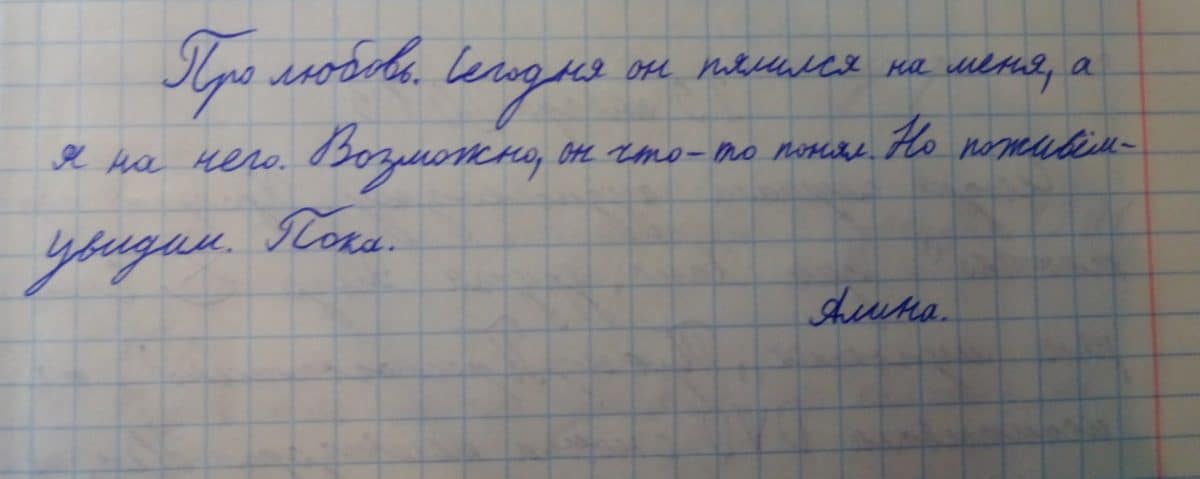 Про любовь. Сегодня он пялился на меня, а
я на него. Возможно, он что-то понял. Но поживём-
увидим. Пока.
Алина.